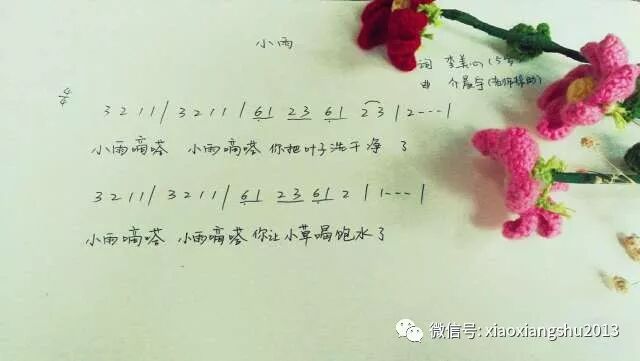 小雨
词 李美
曲
4/4
3 2 1 1 / 3 2 1 1 / 6 1 2 3 6 1 2 3 | 2 - - - |
小雨嘀嗒 小雨嘀嗒 你把叶子洗干净 了
3 2 1 1 / 3 2 1 1 / 6 1 2 3 6 1 2 | 1 - - - |
小雨嘀嗒 小雨嘀嗒 你让小草喝饱水了
微信号: xiaoxiangshu2013